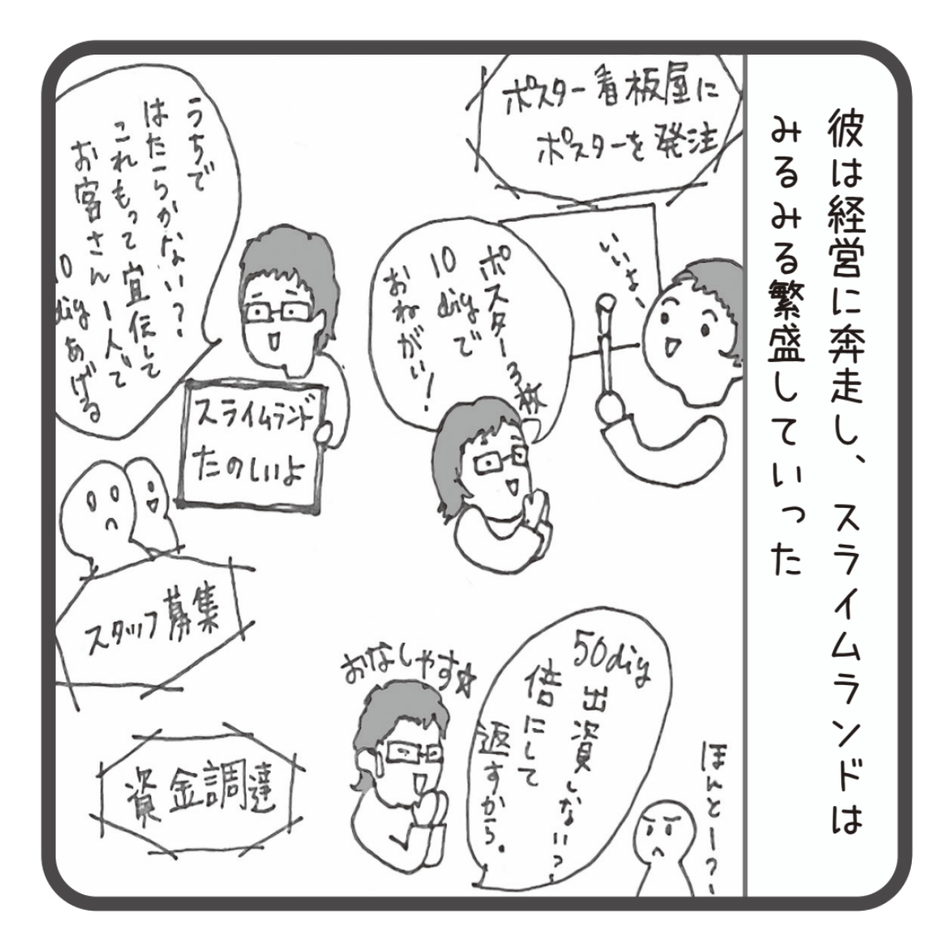 彼は経営に奔走し、スライムランドは
みるみる繁盛していった
ポスター看板屋に
ポスターを発注
いいよー
ポスター3枚
10diyで
おねがい!
うちで
はたらかない?
これもって宣伝して
お客さん1人で
10diyあげる
スライムランド
たのしいよ
スタッフ募集
50diy
出資しない?
倍にして
返すから。
おなしゃす☆
ほんとー?
資金調達